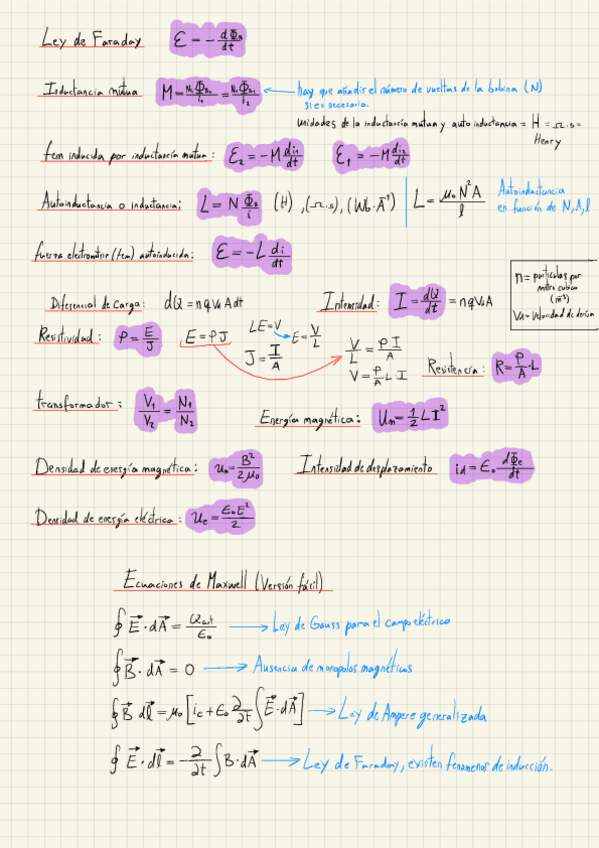 Ley de Faraday ε = - dΦB/dt
Inductancia mutua M = N₂ΦB₂/i₁ = N₁ΦB₁/i₂ ← hay que añadir el número de vueltas de la bobina (N)
si es necesario.
Unidades de la inductancia mutua y auto inductancia = H = Ω.s =
Henry
fem inducida por inductancia mutua: ε₂ = -M di₁/dt ε₁ = -M di₂/dt
Autoinductancia o inductancia: L = N ΦB/i (H), (Ω.s), (Wb·A⁻¹) L = μ₀N²A/l Autoinductancia
en función de N, A, l
fuerza electromotriz (fem) autoinducida: ε = -L di/dt
n = partículas por
metro cúbico
(m⁻³)
Vd = velocidad de deriva
Diferencial de Carga: dQ = nqVdAdt Intensidad: I = dQ/dt = nqVdA
Resistividad: ρ = E/J E = ρJ LE = V → E = V/L
J = I/A V/L = ρI/A
V = ρ/A L I Resistencia: R = ρ/A·L
transformador: V₁/V₂ = N₁/N₂ Energía magnética: Um = 1/2 L I²
Densidad de energía magnética: um = B²/2μ₀ Intensidad de desplazamiento id = ε₀ dΦe/dt
Densidad de energía eléctrica: ue = ε₀E²/2
Ecuaciones de Maxwell (Versión fácil)
∮ E⃗·dA⃗ = /ε₀ → Ley de Gauss para el campo eléctrico
∮ B⃗·dA⃗ = 0 → Ausencia de monopolos magnéticos
∮ B⃗ dl⃗ = μ₀ [ic + ε₀ ∂/∂t ∫ E⃗·dA⃗] → Ley de Ampere generalizada
∮ E⃗·dl⃗ = - ∂/∂t ∫ B·dA⃗ → Ley de Faraday, existen fenomenos de inducción.